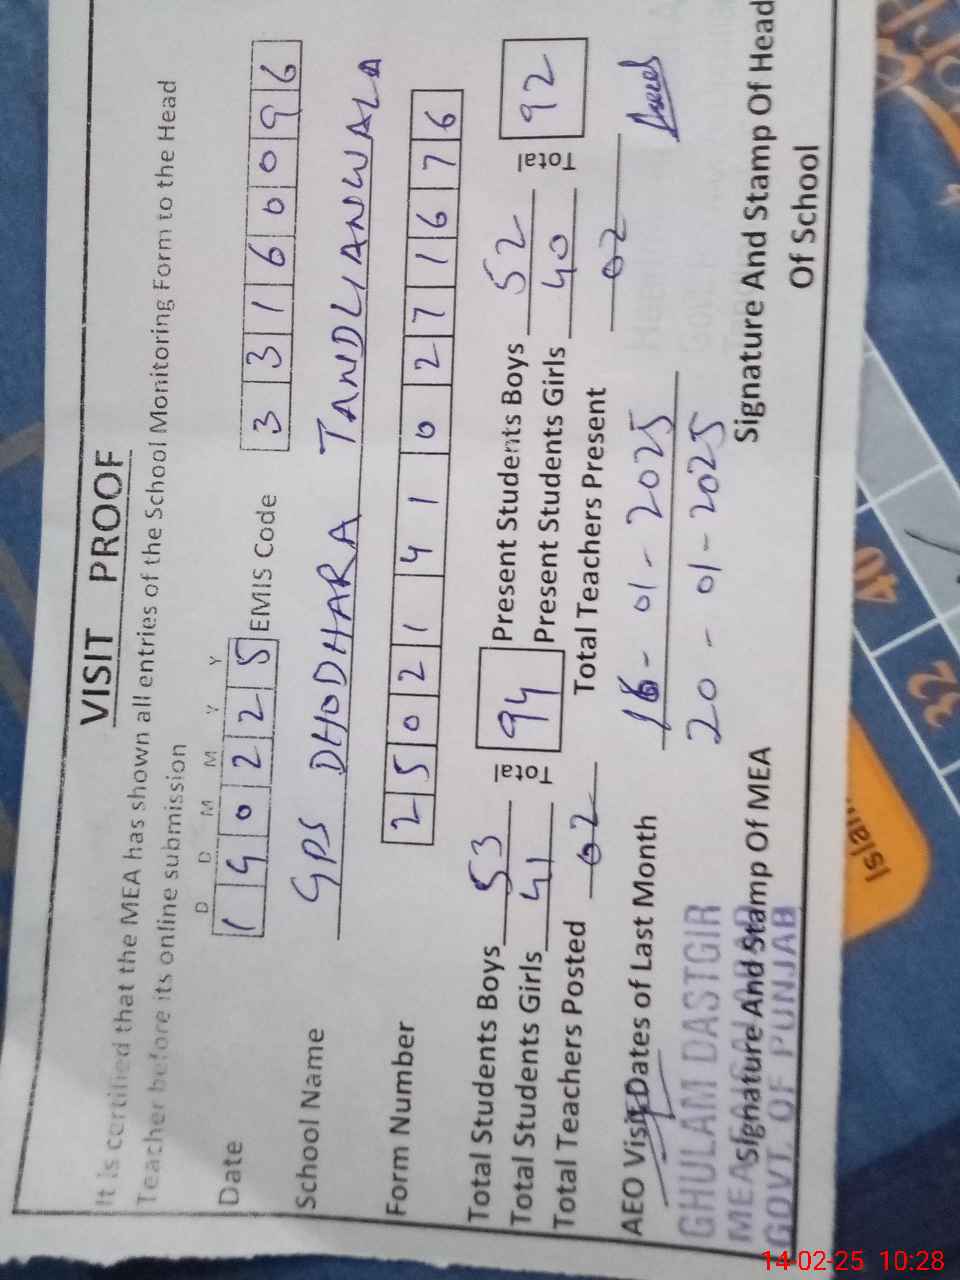 VISIT PROOF
It is certified that the MEA has shown all entries of the School Monitoring Form to the Head
Teacher before its online submission
D D M M Y Y
Date 1 4 0 2 2 5 EMIS Code 3 3 1 6 0 0 9 6
School Name GPS DHODHARA TANDLIANWALA
Form Number 2 5 0 2 1 4 1 0 2 7 1 6 7 6
Total Students Boys 53 Total 94 Present Students Boys 52 Total 92
Total Students Girls 41 Present Students Girls 40
Total Teachers Posted 02 Total Teachers Present 02
AEO Visit Dates of Last Month 16-01-2025
20-01-2025
GHULAM DASTGIR
MEA
GOVT. OF PUNJAB
Signature And Stamp Of MEA
Signature And Stamp Of Head
Of School
40
32
Islam..
14-02-25 10:28